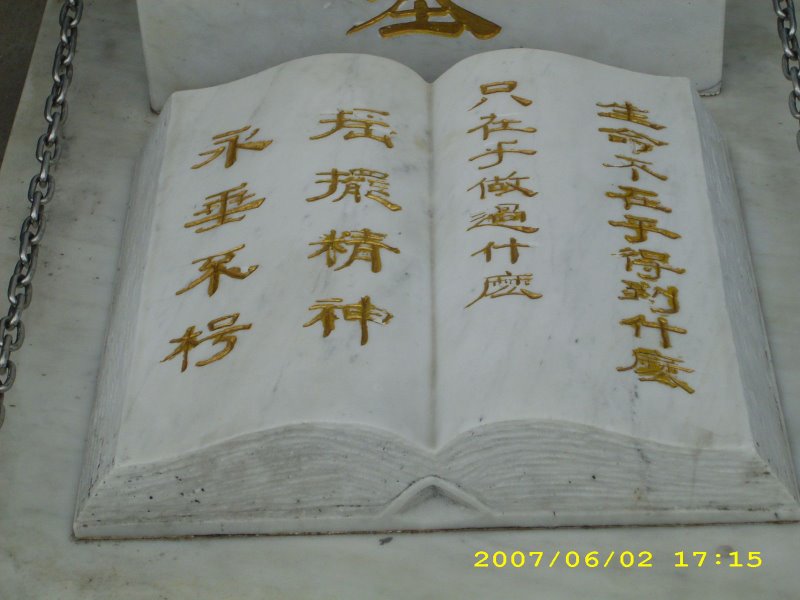 生命不在乎得到什麼
只在乎做過什麼
搖擺精神
永垂不朽
2007/06/02 17:15